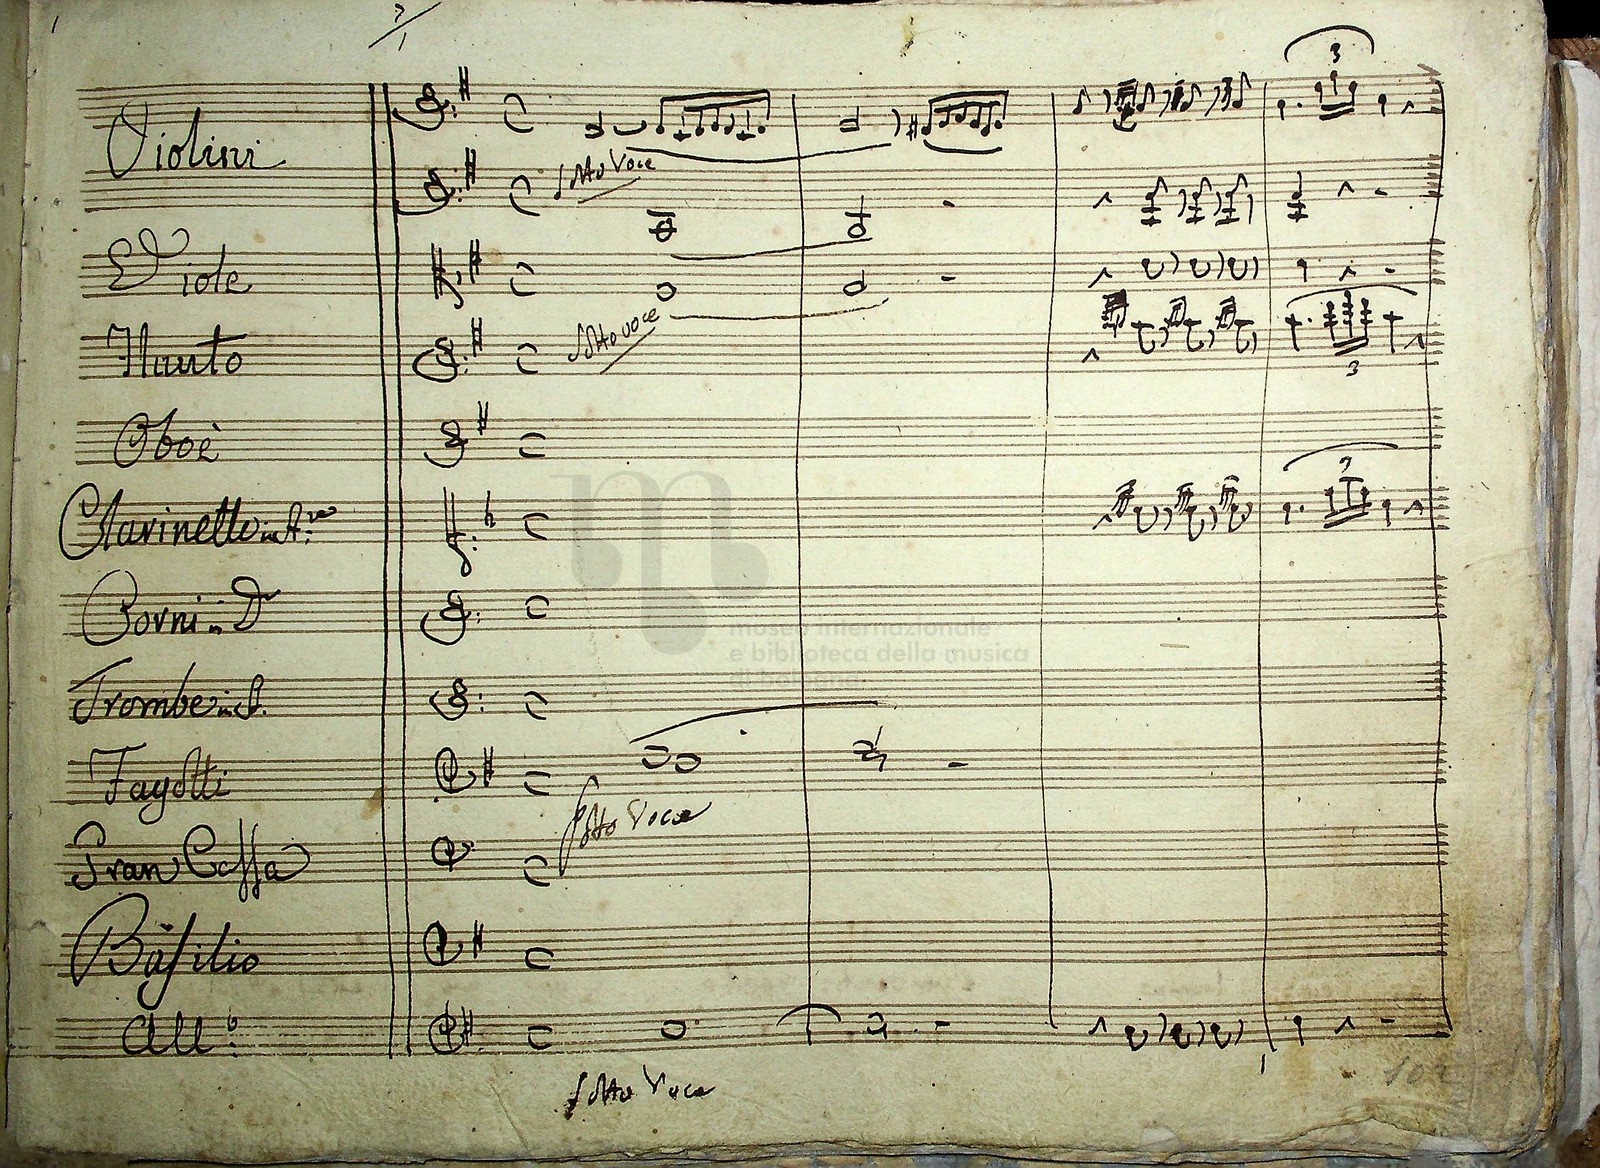 1
Violini
sotto Voce
Viole
Flauto
sotto voce
3
3
Oboè
Clarinetto in A
3
Corni in D
Trombe in
museo internazionale
e biblioteca della musica
di bologna
Fagotti
sotto Voce
Gran Cassa
Basilio
All:º
sotto Voce
102